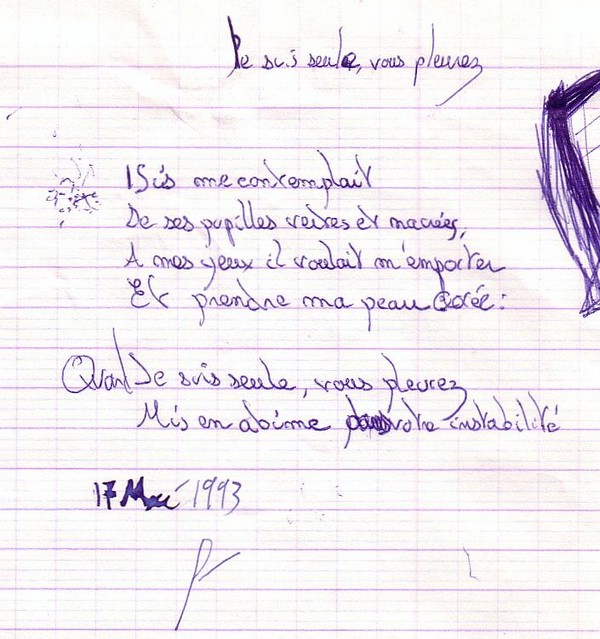 Je suis seule, vous pleurez
ISis me contemplait
De ses pupilles vertes et nacrées,
A mes yeux il voulait m'emporter
Et prendre ma peau dorée :
Quand Je suis seule, vous pleurez
Mis en abime dans votre instabilité
17 Mai 1993